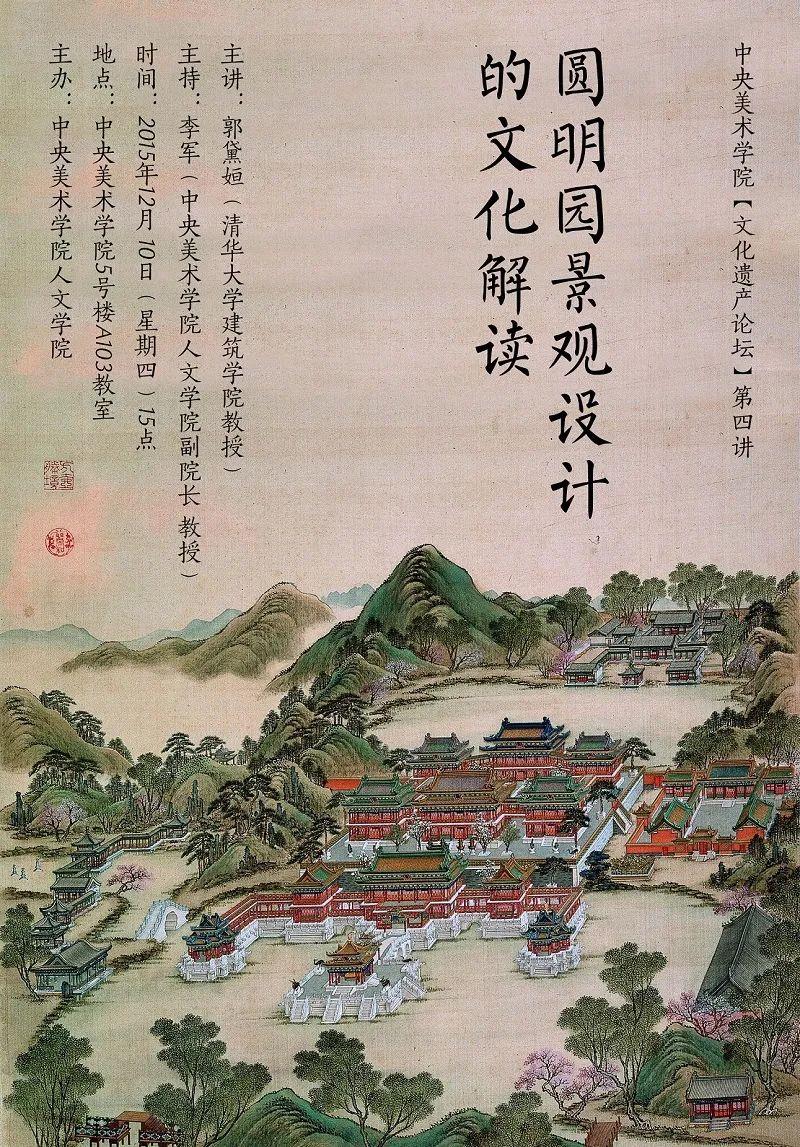 中央美术学院【文化遗产论坛】第四讲
圆明园景观设计
的文化解读
主讲：郭黛姮（清华大学建筑学院教授）
主持：李军（中央美术学院人文学院副院长 教授）
时间：2015年12月10日（星期四）15点
地点：中央美术学院5号楼A103教室
主办：中央美术学院人文学院